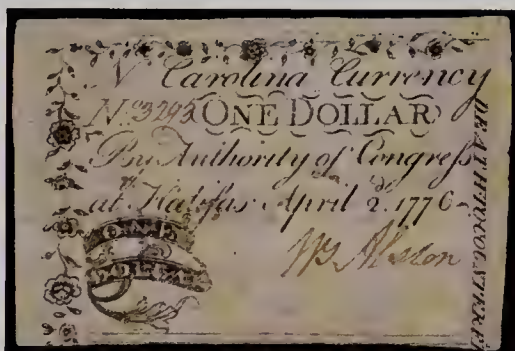 N Carolina Currency
No. 3295 ONE DOLLAR
By Authority of Congress
at Halifax April 2. 1776
ONE
DOLLAR
DEATH TO COUNTERFEIT